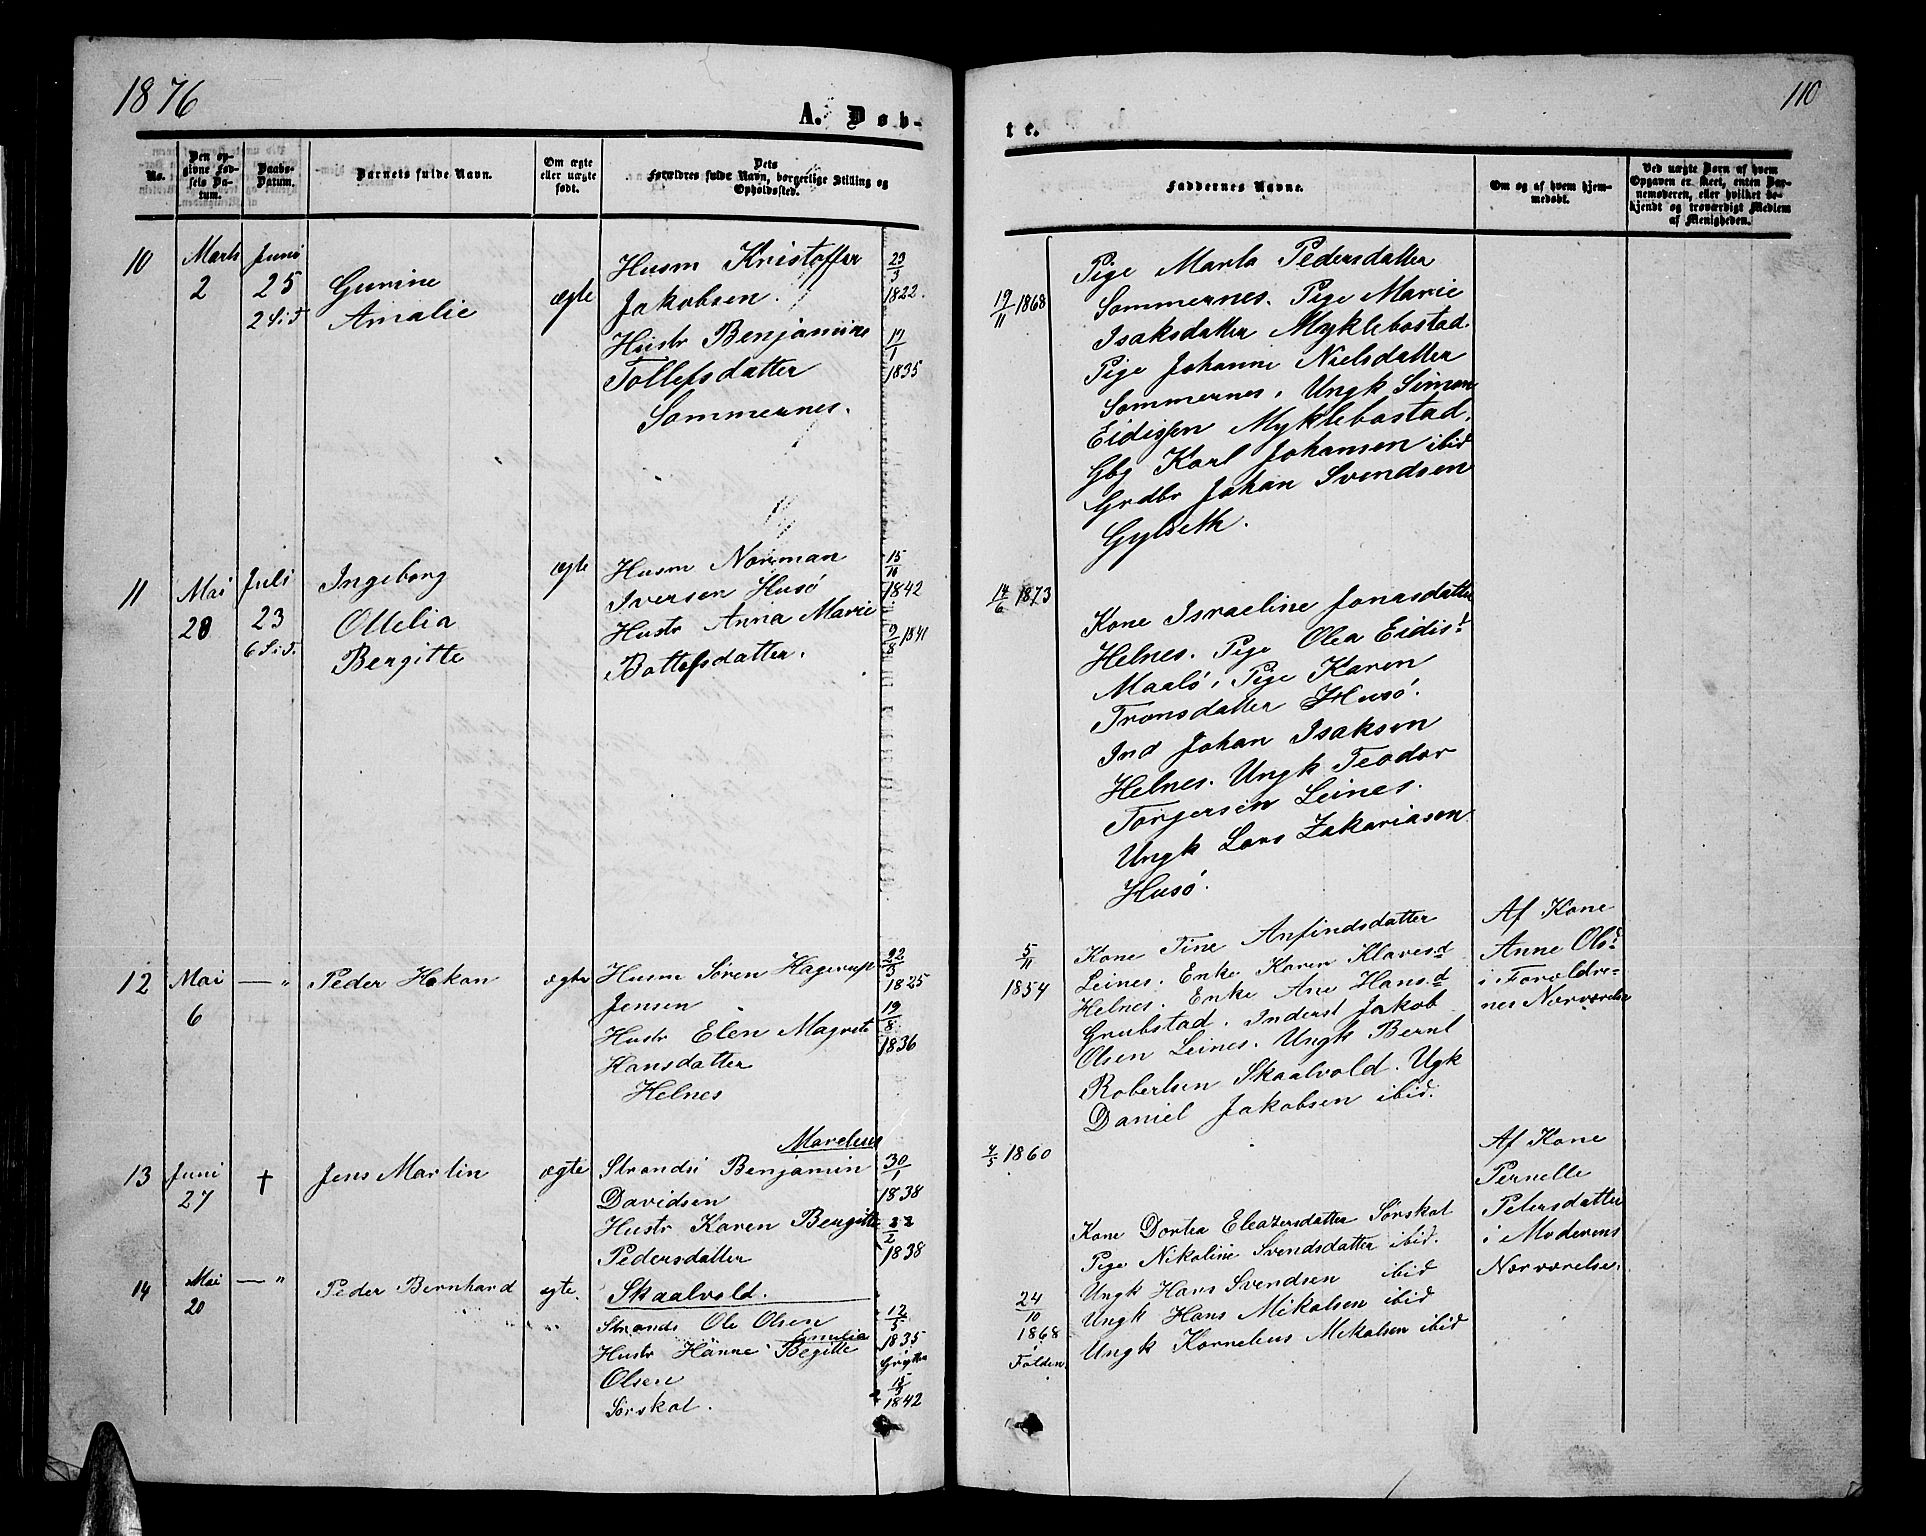 1876
A. Døb-
No.
Den op-
givne Fød-
sels Da-
tum.
Daabs-
Datum.
Barnets fulde Navn.
Om ægte
eller uægte
født.
Dets
Forældres fulde Navn, borgerlige Stilling og
Opholdssted.
10
Marts
2
Juni
25
2 S i T
Gurine
Amalie
ægte
Husm Kristoffer
Jakobsen.
Hustr Benjamine
Tollefsdatter
Sommernes.
23/3
1822.
17/1
1835
11
Mai
28
Juli
23
6 S. i. T.
Ingeborg
Otelia
Bergitte
ægte
Husm Norman
Iversen Husö
Hustr Anna Marie
Bottefsdatter.
15/10
1842
9/8 1841
12
Mai
6
— "
Peder Hakan
ægte
Husm Sören Hagerup
Jensen
Hustr Elen Magrete
Hansdatter
Helnes
22/3
1825
19/8
1836
13
Juni
27
†
Jens Martin
ægte
Marelius
Strands Benjamin
Davidsen
Hustr Karen Bergitte
Pedersdatter
Skaalvold.
30/1
1838
22/2
1838
14
Mai
20
— "
Peder Bernhard
ægte.
Strands Ole Olsen
Amalia
Hustr Hanne Begitte
Olsen
Sörskot.
12/5
1835
15/3
1842
110
te.
Faddernes Navne.
Om og af hvem hjem-
medøbt.
Ved uægte Børn af hvem
Opgaven er skeet, enten Bar-
nemoderen, eller hvilket be-
kjendt og troværdigt Medlem
af Menigheden.
19/11 1868
Pige Marta Pedersdatter
Sommernes. Pige Marie
Isaksdatter Myklebostad.
Pige Johanne Nielsdatter
Sommernes. Ungk Simon
Eidissen Myklebostad.
Gbg Karl Johansen ibid
Grdbr Johan Svendsen
Gylseth.
14/6 1873
Kone Israeline Jonasdatter
Helnes. Pige Olea Eidisd
Maalö, Pige Karen
Tronsdatter Husö.
Ind Johan Isaksen
Helnes. Ungk Teodor
Torgersen Leines.
Ungk Lars Zakariasen
Husö.
5/11
1854
Kone Tine Anfindsdatter
Leines. Enke Karen Klavesd
Helnes. Enke Ane Hansd
Grubstad. Inderst Jakob
Olsen Leines. Ungk Bernt
Robertsen Skaalvold. Ugk
Daniel Jakobsen ibid.
Af Kone
Anne Olsd
i Forældre-
nes Nærværelse
4/5 1860
Af Kone
Pernelle
Petersdatter
i Moderens
Nærværelse.
24/10
1868
Folden.
Kone Dortea Eleazersdatter Sörskot
Pige Nikoline Svendsdatter ibid.
Ungk Hans Svendsen ibid
Ungk Hans Mikalsen ibid
Ungk Kornelius Mikalsen ibid